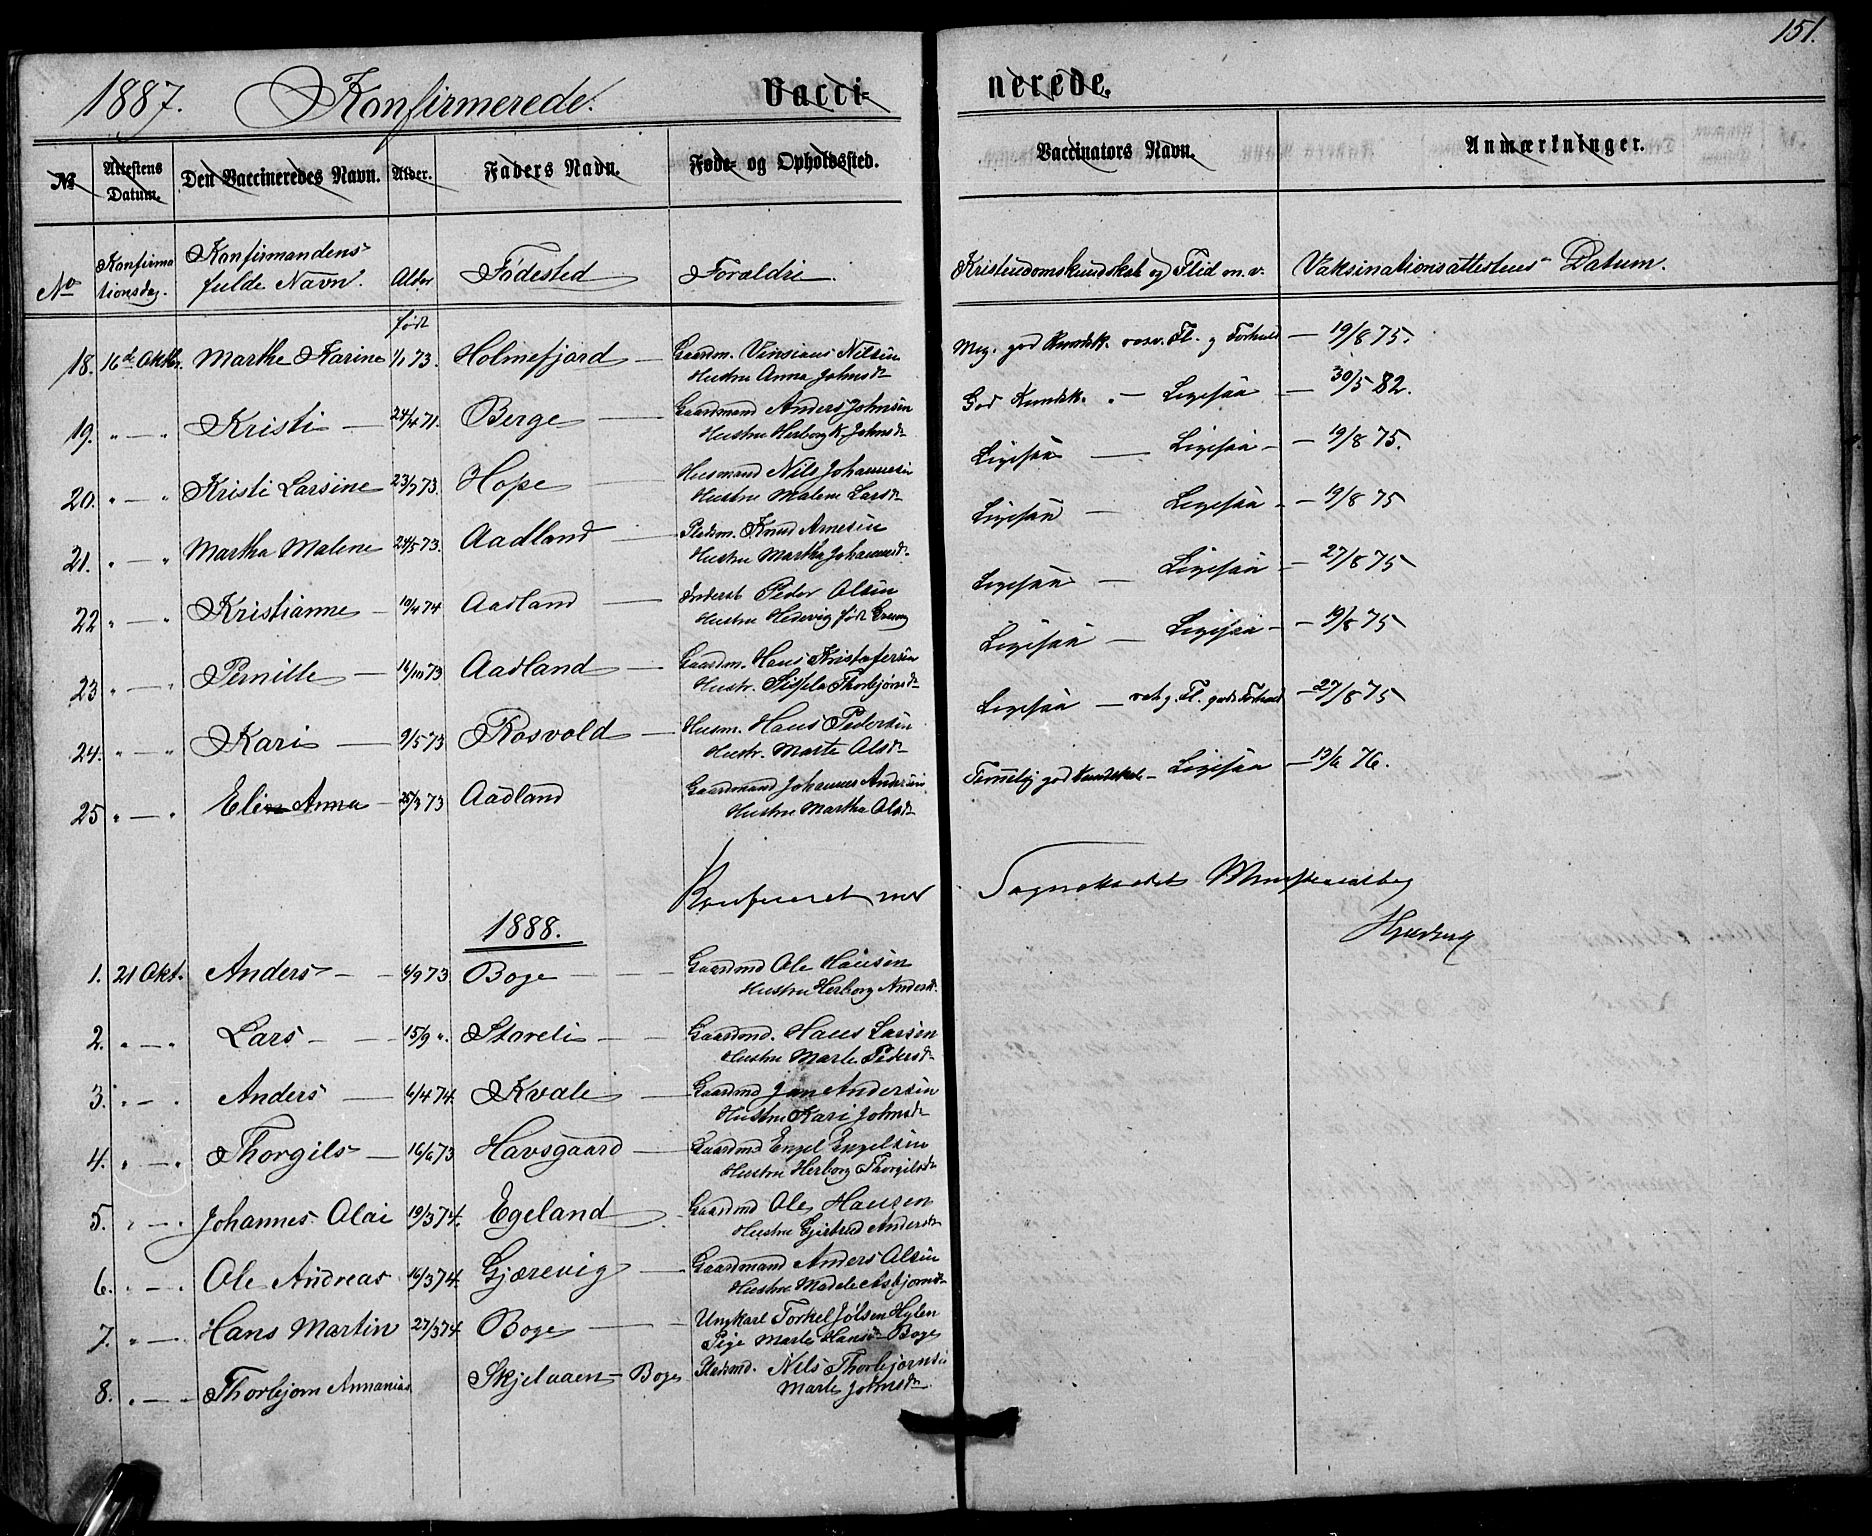 151.
1887. Konfirmerede. Vacci- nerede.
No Attestens Datum. Den Vaccineredes Navn. Alder. Faders Navn. Føde- og Opholdssted. Vaccinators Navn. Anmærkninger.
No Konfirma tionsdag. Konfirmandens fulde Navn. Alder Fødested Forældre. Kristendomskundskab og Flid m. v. Vaksinationsattestens Datum.
født
18. 16de Oktbr. Marthe Karine 1/1 73. Holmefjord — Gaardm. Vinsians Nilsen
Hustru Anna Johnsdr
Meg. god Kundsk. Fl. og Forhold — 19/8 75.
19. " — " Kristi — 24/4 71. Berge — Gaardmand Anders Johnsen
Hustru Herborg K. Johnsdr
God Kundsk. " — Ligesaa — 30/5 82.
20. " — " Kristi Larsine 23/7 73. Hope — Husmand Nils Johannesen
Hustru Malene Larsdr
Ligesaa — Ligesaa — 19/8 75.
21. " — " Martha Malene 24/5 73. Aadland — Pladsm. Knud Arnesen
Hustru Martha Johannesdr.
Ligesaa — Ligesaa — 19/8 75
22 " — " Kristianne — 19/4 74 Aadland — Inderst Peder Olsen
Hustru Hedevig født
Ligesaa — Ligesaa — 27/8 75
23 " — " Pernille — 16/10 73 Aadland — Gaardm. Hans Kristofersen
Hustr. Sissela Thorbjørnsdr
Ligesaa — Ligesaa — 19/8 75
24. " — " Kari — 9/5 73 Rosvold — Husm. Hans Pedersen
Hustr. Marte Olsdr
Ligesaa — Fl. godt Forhold — 27/8 75
25 " — " Elen Anna — 25/9 73 Aadland Gaardmand Johannes Andersen
Hustru Martha Olsdr
Temmelig god Kundskab — Ligesaa — 13/6 76.
Konfereret med Sognekaldet
1888.
1. 21 Okt. Anders — 6/9 73 Boge — Gaardmd Ole Hansen
Hustru Herborg Andersdr.
2. " — " Lars — 15/9 ". Storeli — Gaardmd. Hans Larsen
Hustru Marte Pedersdr
3. " — " Anders — 6/4 74. Kvale — Gaardmd Jon Andersen
Hustru Kari Johnsdr
4. " — " Thorgils — 16/6 73 Havsgaard — Gaardmd Engel Engelsen
Hustru Herborg Thorgilsdr
5. " — " Johannes Olai 19/3 74. Egeland Gaardmd Ole Hansen
Hustru Gjertrud Andersdr
6. " — " Ole Andreas 16/3 74. Gjærevig — Gaardmand Anders Olsen
Hustru Madele Asbjørnsdr
7. " — " Hans Martin 27/3 74. Boge — Ungkarl Torkel Jølsen Hylen
Pige Marte Hansdr Boge
8. " — " Thorbjørn Annanias Skjelaaen — Boge Pladsmd. Nils Thorbjørnsen
Marte Johnsdr.